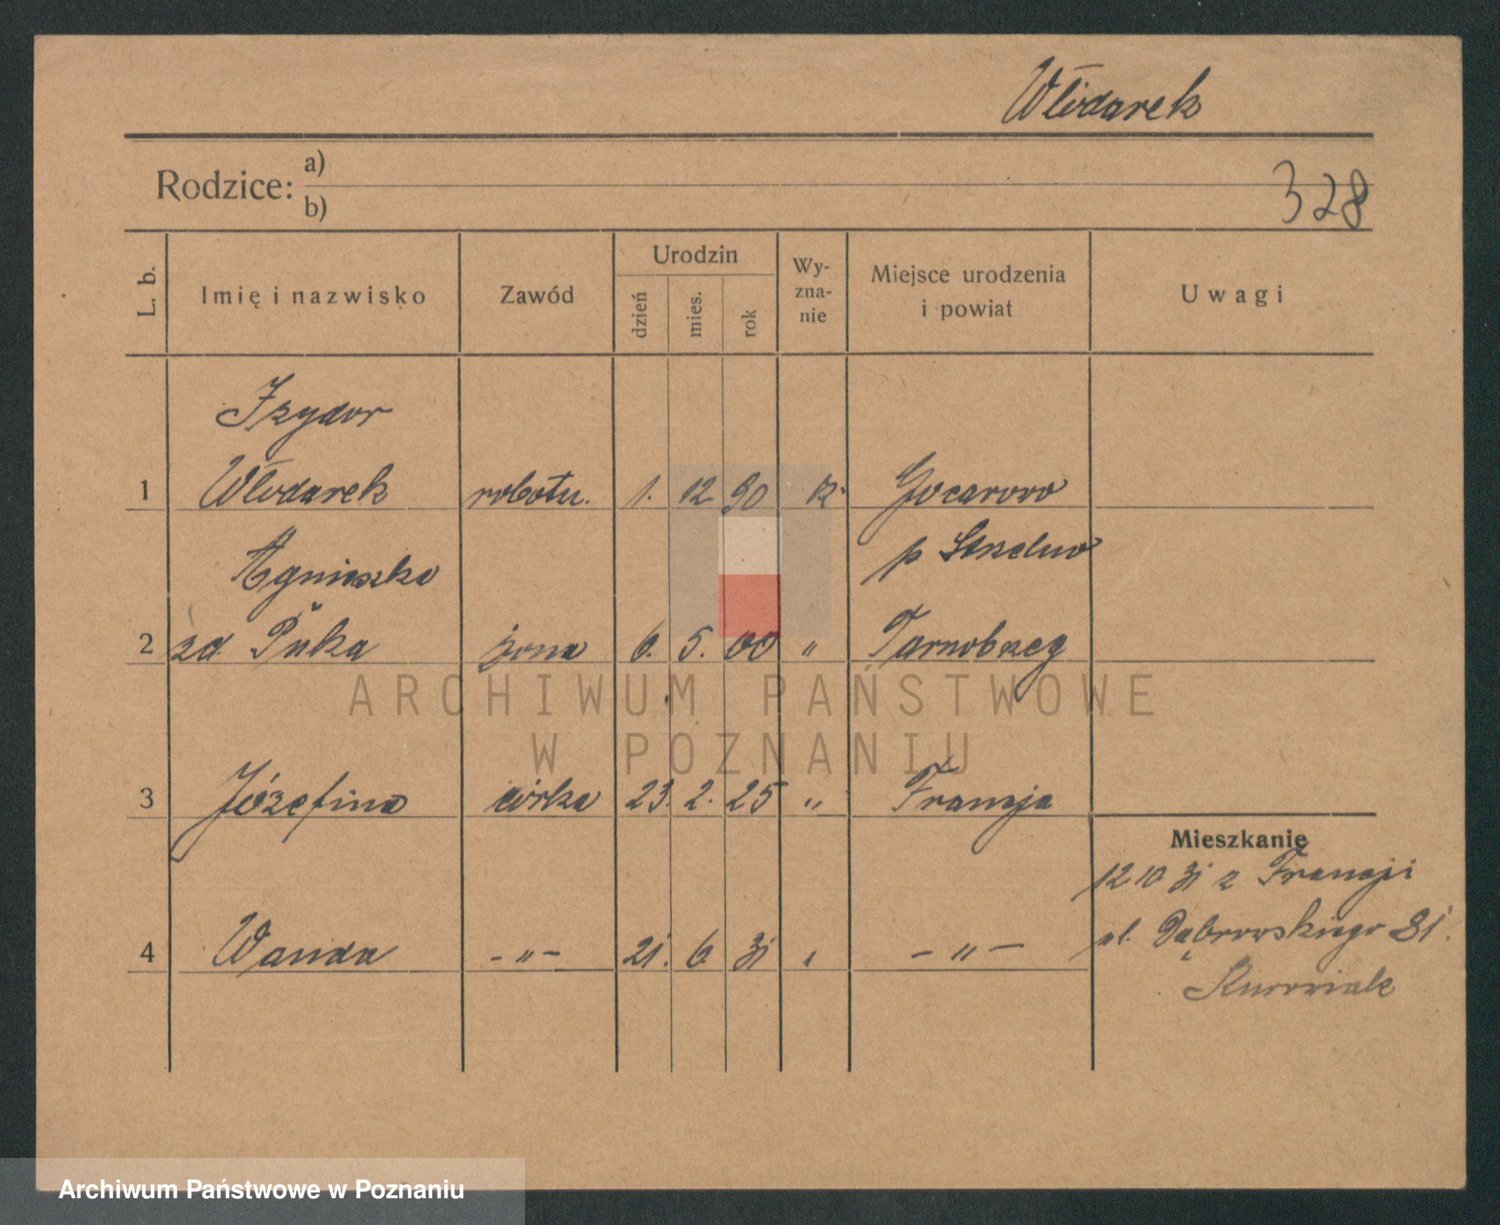 Włodarek
Rodzice: a)
b)
328
L. b.
Imię i nazwisko
Zawód
Urodzin
dzień
mies.
rok
Wy-
zna-
nie
Miejsce urodzenia
i powiat
Uwagi
Izydor
1 Włodarek robotn. 1. 12 90 k.
Agnieszka
p
2 zd. Puka żona 6. 5. 00 " Tarnobrzeg
ARCHIWUM PAŃSTWOWE
W POZNANIU
3 Józefina córka 23. 2. 25 " Francja
Mieszkanie
12 10 31 z Francji
4 Wanda -"- 21. 6. 31 " -"-
ul. Dąbrowskiego 81.
Archiwum Państwowe w Poznaniu